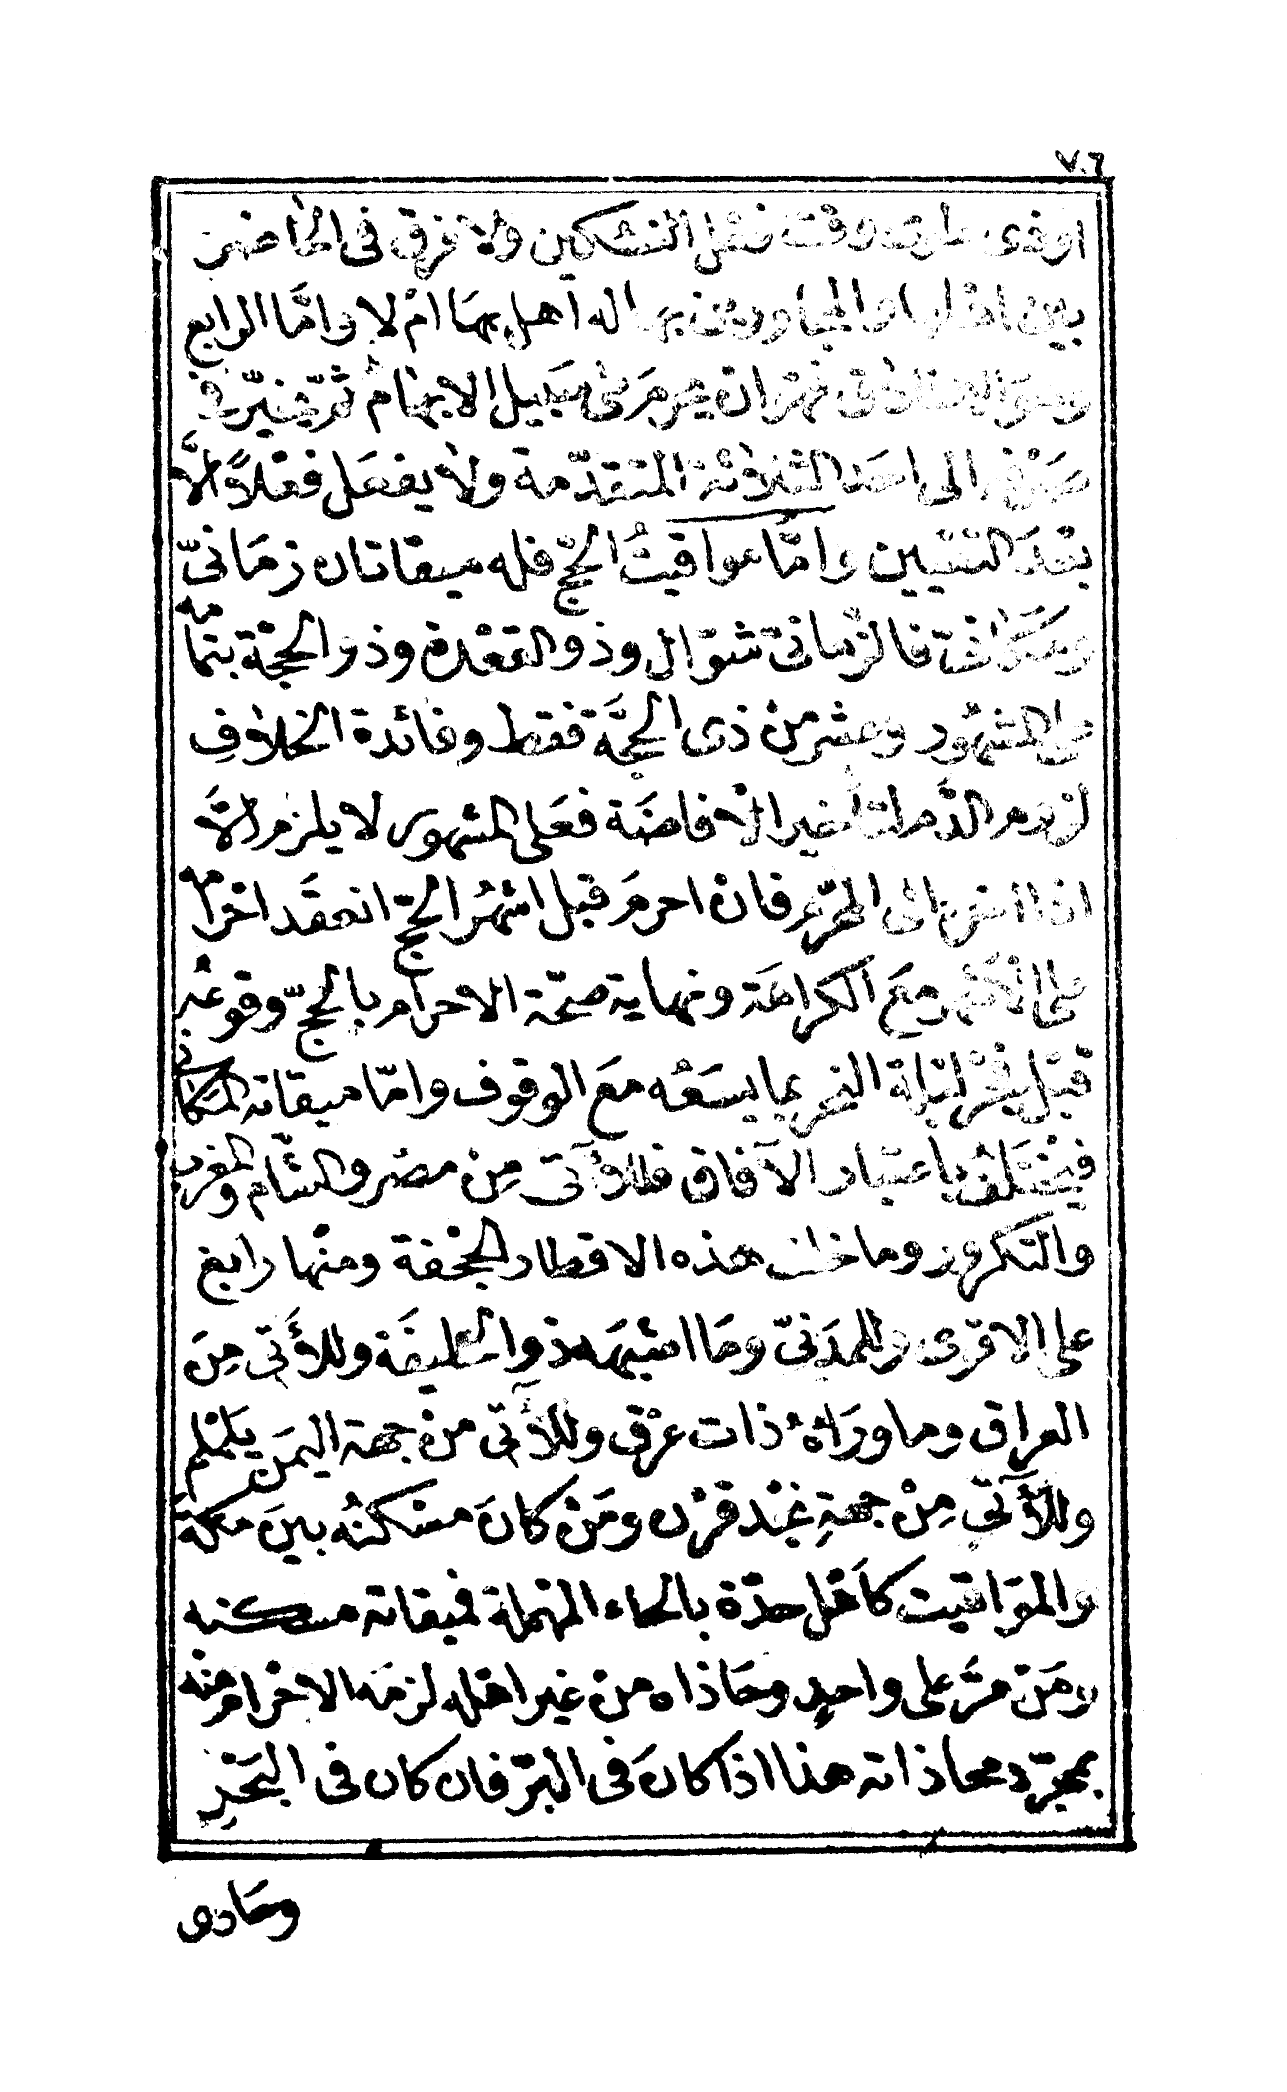 ٧٠٦
او ذى طوى وقت فعل النسكين ولا فرق فى الحاضر
بين اهلها والمجاورين بها له اهل بها ام لا واما الرابع
وهو الاطلاق فهو ان يحرم على سبيل الابهام ثم يخير فى
صرفه الى احد الثلاثة المتقدمة ولا يفعل فعلا الا
بعد التعيين واما مواقيت الحج فله ميقاتان زمانىّ
ومكانىّ فالزمانى شوّال وذو القعدة وذو الحجة بتمامه
على المشهور وعشر من ذى الحجّة فقط وفائدة الخلاف
لزوم الدم لتأخير الافاضة فعلى المشهور لا يلزم الّا
اذا اخر الى المحرّم فان احرم قبل اشهر الحجّ انعقد احرامه
على الاشهر مع الكراهة ونهاية صحّة الاحرام بالحجّ وقوعه
قبل فجر ليلة النحر بما يسعه مع الوقوف وامّا ميقاته المكانى
فيختلف باعتبار الآفاق فللآتى من مصر والشام والمغرب
والتكرور وما خلف هذه الاقطار الجحفة ومنها رابغ
على الاقوى وللمدنىّ وما اشبهه ذو الحليفة وللآتى من
العراق وما وراءه ذات عرق وللآتى من جهة اليمن يلملم
وللآتى من جهة نجد قرن ومن كان مسكنه بين مكة
والمواقيت كاهل حدّة بالحاء المهملة فميقاته مسكنه
ومن مرّ على واحد وحاذاه من غير اهله لزمه الاحرام منه
بمجرّد محاذاته هذا اذا كان فى البرّ فان كان فى البحر
وحاذى